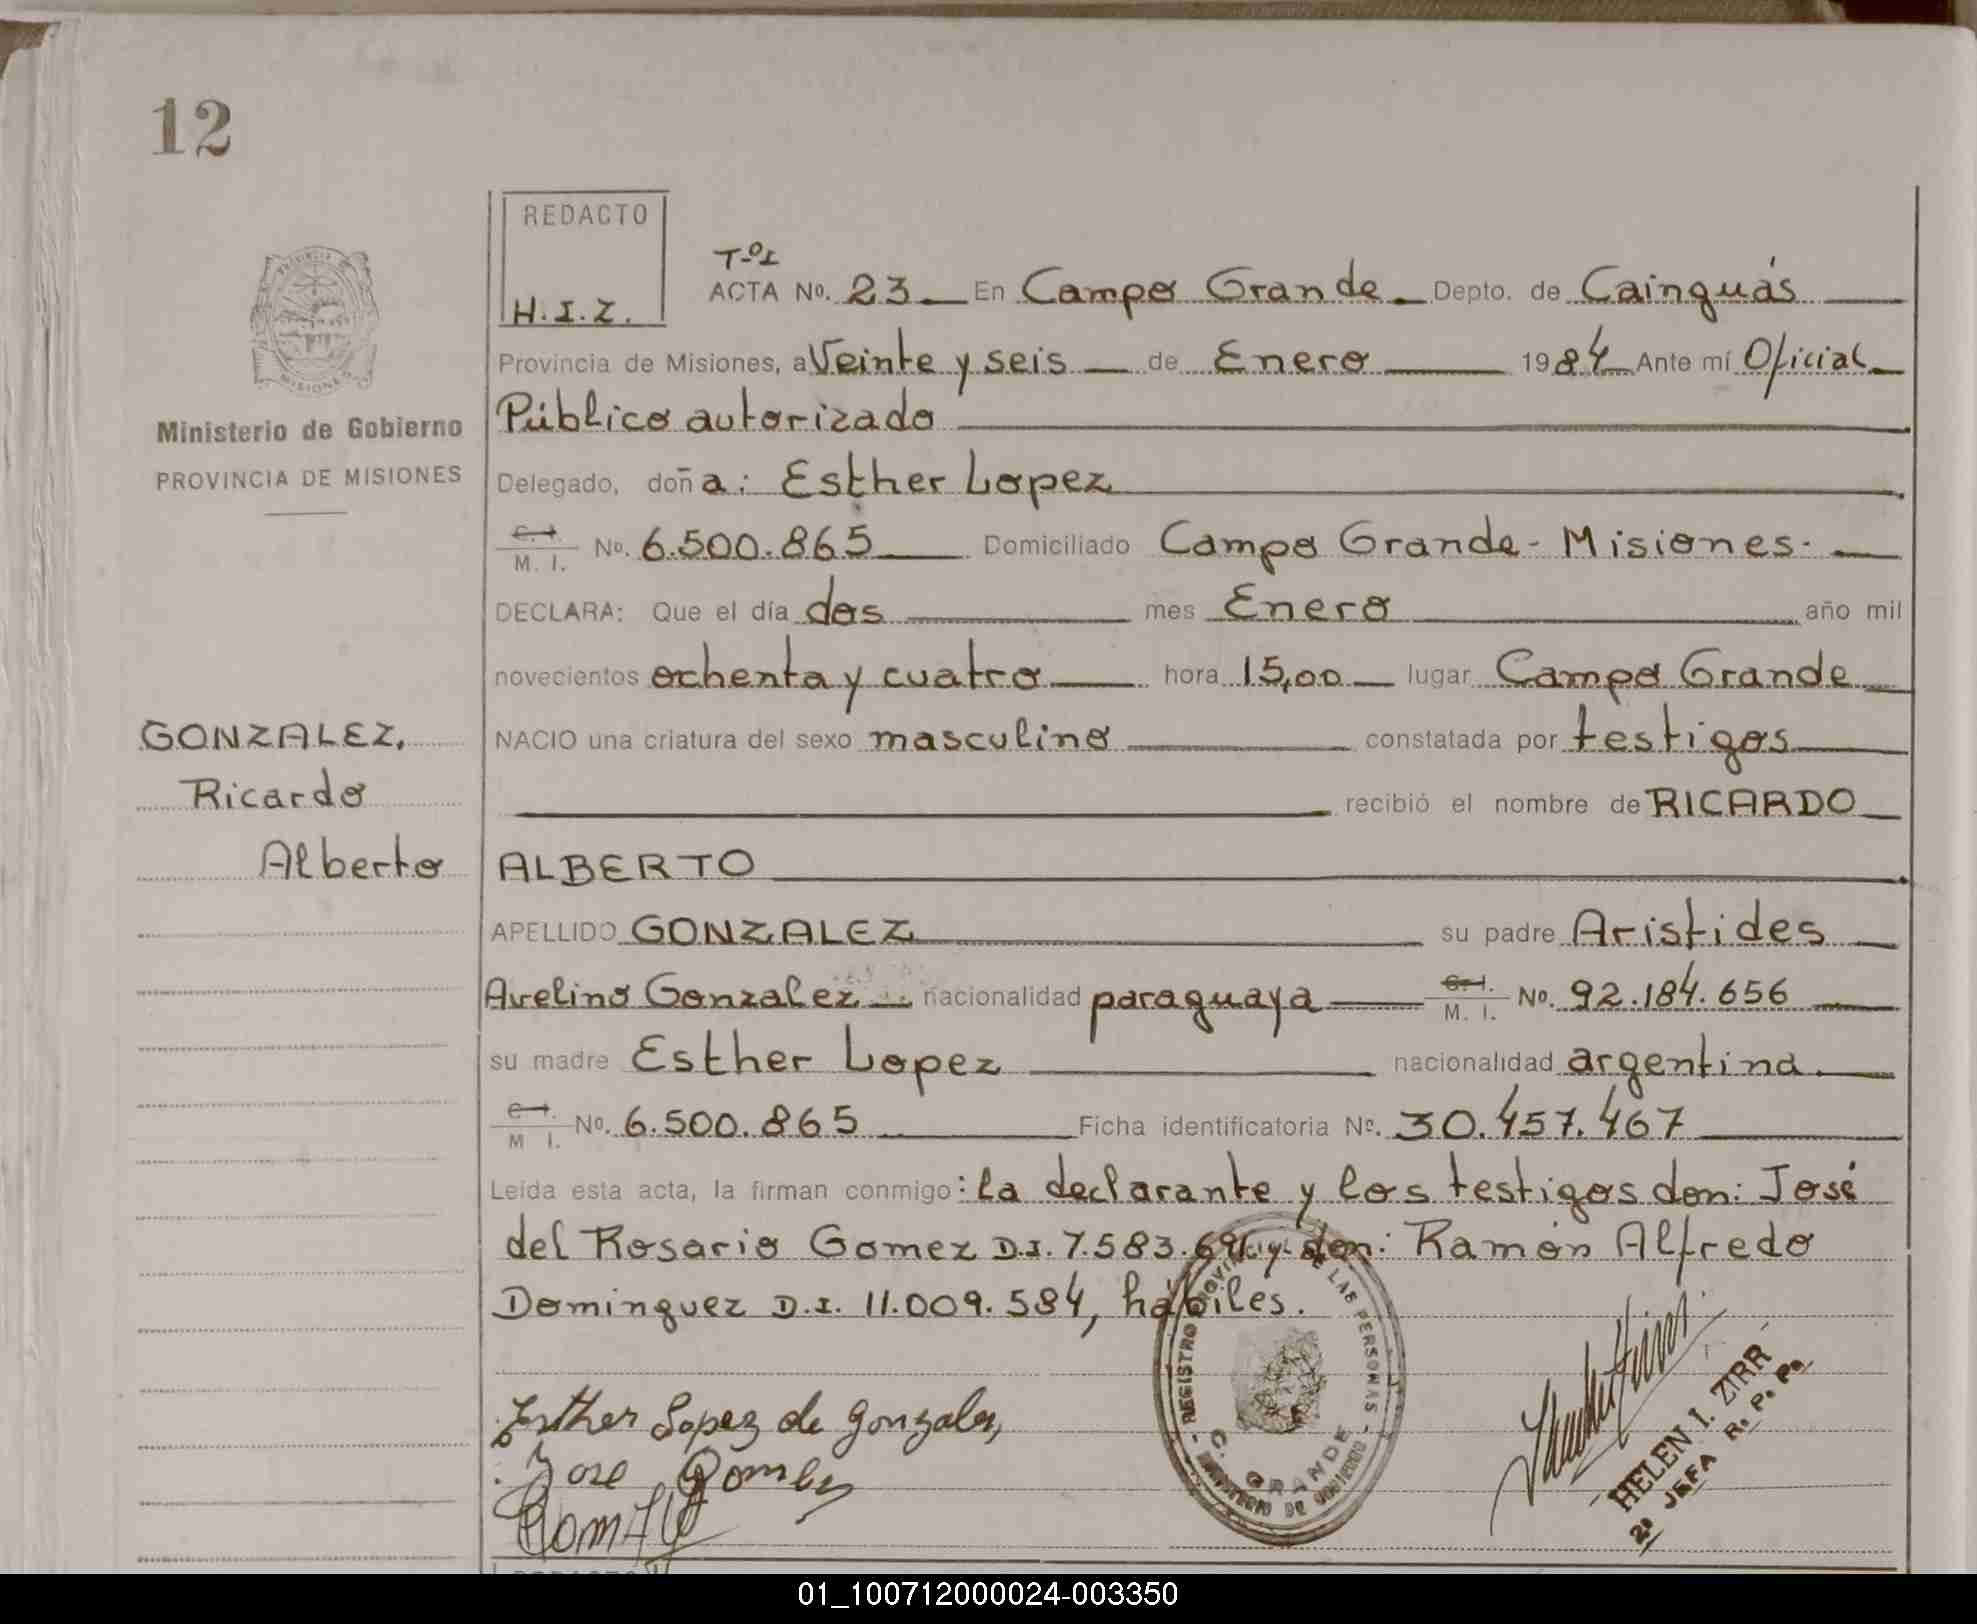 12
REDACTO
H.I.Z.
Tº1
ACTA Nº. 23 En Campo Grande Depto. de Cainguás
Provincia de Misiones, a Veinte y seis de Enero 1984 Ante mí Oficial
Público autorizado
Ministerio de Gobierno
PROVINCIA DE MISIONES
Delegado, doña: Esther Lopez
C. I.
M. I. Nº. 6.500.865 Domiciliado Campo Grande - Misiones.
DECLARA: Que el día dos mes Enero año mil
novecientos ochenta y cuatro hora 15,00 lugar Campo Grande
GONZALEZ,
Ricardo
Alberto
NACIO una criatura del sexo masculino constatada por testigos
recibió el nombre de RICARDO
ALBERTO
APELLIDO GONZALEZ su padre Aristides
Avelino Gonzalez nacionalidad paraguaya C. I. M. I. Nº. 92.184.656
su madre Esther Lopez nacionalidad argentina.
C. I.
M I. Nº. 6.500.865 Ficha identificatoria Nº. 30.457.467
Leída esta acta, la firman conmigo: la declarante y los testigos don: José
del Rosario Gomez D.I. 7.583. y don: Ramón Alfredo
Dominguez D.I. 11.009.584, hábiles.
REGISTRO PROVINCIAL DE LAS PERSONAS
C. GRANDE
MINISTERIO DE GOBIERNO
Esther Lopez de Gonzalez,
Jose Gomez
HELEN I. ZIRR
2ª JEFA R. P. P.
01_100712000024-003350